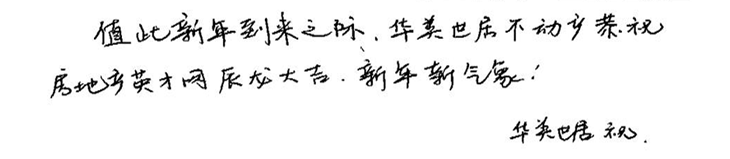 值此新年到来之际，华美世居不动产恭祝
房地产英才网辰龙大吉．新年新气象！
华美世居 祝．